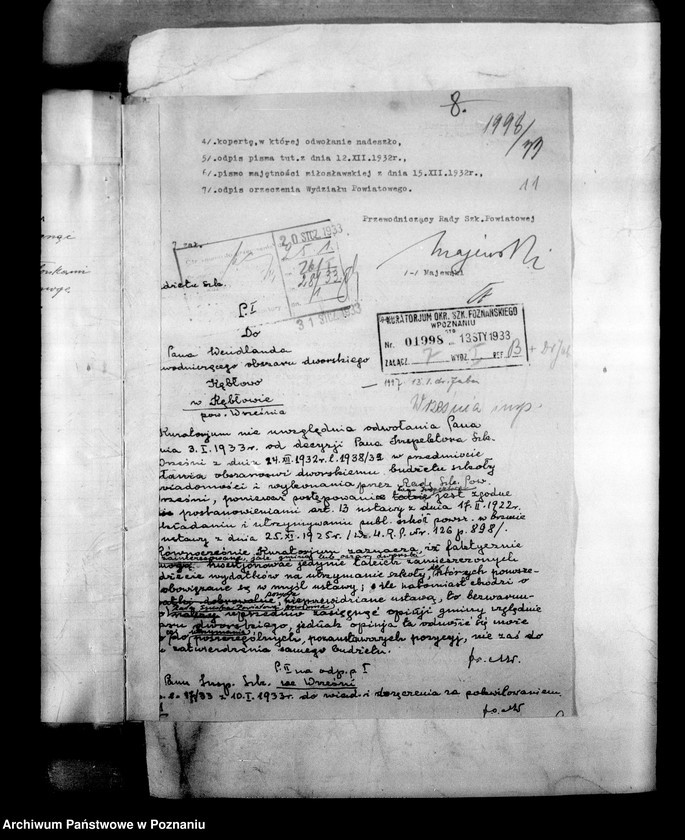 8.
1998/33
11
4/.kopertę,w której odwołanie nadeszło,
5/.odpis pisma tut.z dnia 12.XII.1932r.,
6/.pismo majętności miłosławskiej z dnia 15.XII.1932r.,
7/.odpis orzeczenia Wydziału Powiatowego.
Przewodniczący Rady Szk.Powiatowej
Majewski
/-/ Majewski
7 zał.
20 STYCZ. 1933
31 STYCZ. 1933
KURATORJUM OKR. SZK. POZNAŃSKIEGO
W POZNANIU
Nr. 01998 13 STY 1933
ZAŁĄCZ. 7 WYDZ. I REF. B
dzietu Szk.
P. I
Do
Pana Wendlanda
wodniczącego obszaru dworskiego
Kębłowo
w Kębłowie
pow. Września
Września insp.
Kuratorjum nie uwzględnia odwołania Pana
nia 3.I.1933r. od decyzji Pana Inspektora Szk.
Wrześni z dnia 14.XII.1932r. l. 1938/32 w przedmiocie
obszarowi dworskiemu budżetu szkoły
wiadomości i wykonania przez Radę Szk. Pow.
rześni, ponieważ postępowanie jest zgodne
postanowieniami art. 13 ustawy z dnia 17.II.1922r.
kładaniu i utrzymywaniu publ. szkół powsz. w brzmie
ustawy z dnia 25.XI.1925r. / Dz.U.R.P. Nr. 126 p. 898/.
Równocześnie Kuratorjum zaznacza, iż faktycznie
zainteresowane, jak gminy lub obszary dworskie
jedynie takich zamierzonych
dzecie wydatków na utrzymanie szkoły, do których powsze-
obowiązane są w myśl ustawy; o ile natomiast chodzi o
dobrowolne, nieprzewidziane ustawą, to bezwarun-
zasięgnąć opinji gminy względnie
aru dworskiego, jednak opinja ta odnosić się może
do poszczególnych, pozaustawowych pozycyj, nie zaś do
zatwierdzenia samego budżetu.
P. II na odp. p I
Panu Insp. Szk. we Wrześni
87/33 z 10.I.1933r. do wiad. i doręczenia za pokwitowaniem.
Archiwum Państwowe w Poznaniu